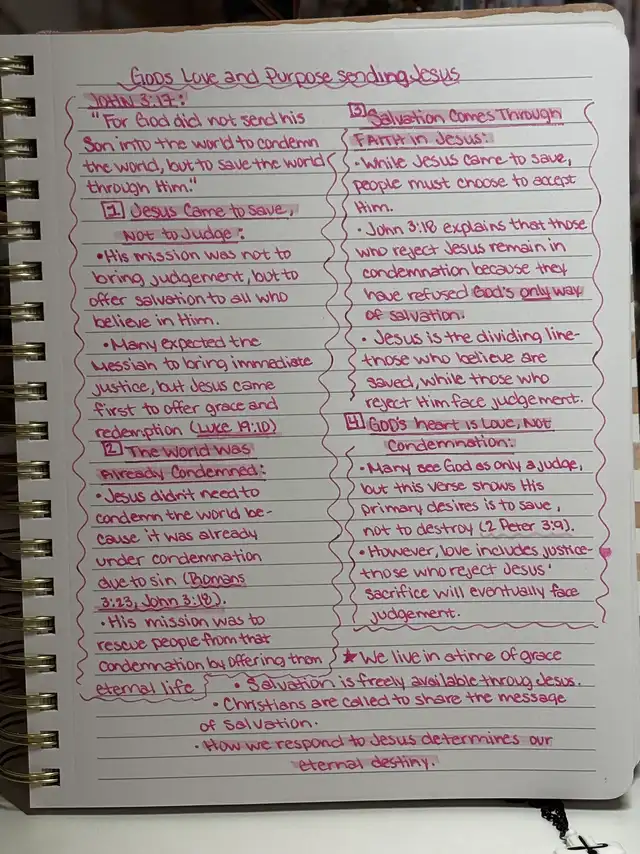 GODS Love and Purpose sending Jesus
JOHN 3:17:
"For God did not send his
Son into the world to condemn
the world, but to save the world
through Him."
1 Jesus Came to save,
Not to Judge:
• His mission was not to
bring judgement, but to
offer salvation to all who
believe in Him.
• Many expected the
Messiah to bring immediate
justice, but Jesus came
first to offer grace and
redemption (Luke 19:10)
2 The World Was
Already Condemned:
• Jesus didn't need to
condemn the world be-
cause it was already
under condemnation
due to sin (Romans
3:23, John 3:18).
• His mission was to
rescue people from that
condemnation by offering them
eternal life
3 Salvation Comes Through
FAITH in Jesus:
• While Jesus came to save,
people must choose to accept
Him.
• John 3:18 explains that those
who reject Jesus remain in
condemnation because they
have refused God's only way
of salvation.
• Jesus is the dividing line-
those who believe are
saved, while those who
reject Him face judgement.
4 GOD'S heart is Love, Not
Condemnation:
• Many see God as only a judge,
but this verse shows His
primary desires is to save,
not to destroy (2 Peter 3:9).
• However, love includes justice-
those who reject Jesus'
sacrifice will eventually face
judgement.
★ We live in a time of grace
• Salvation is freely available throug Jesus.
• Christians are called to share the message
of salvation.
• How we respond to Jesus determines our
eternal destiny.